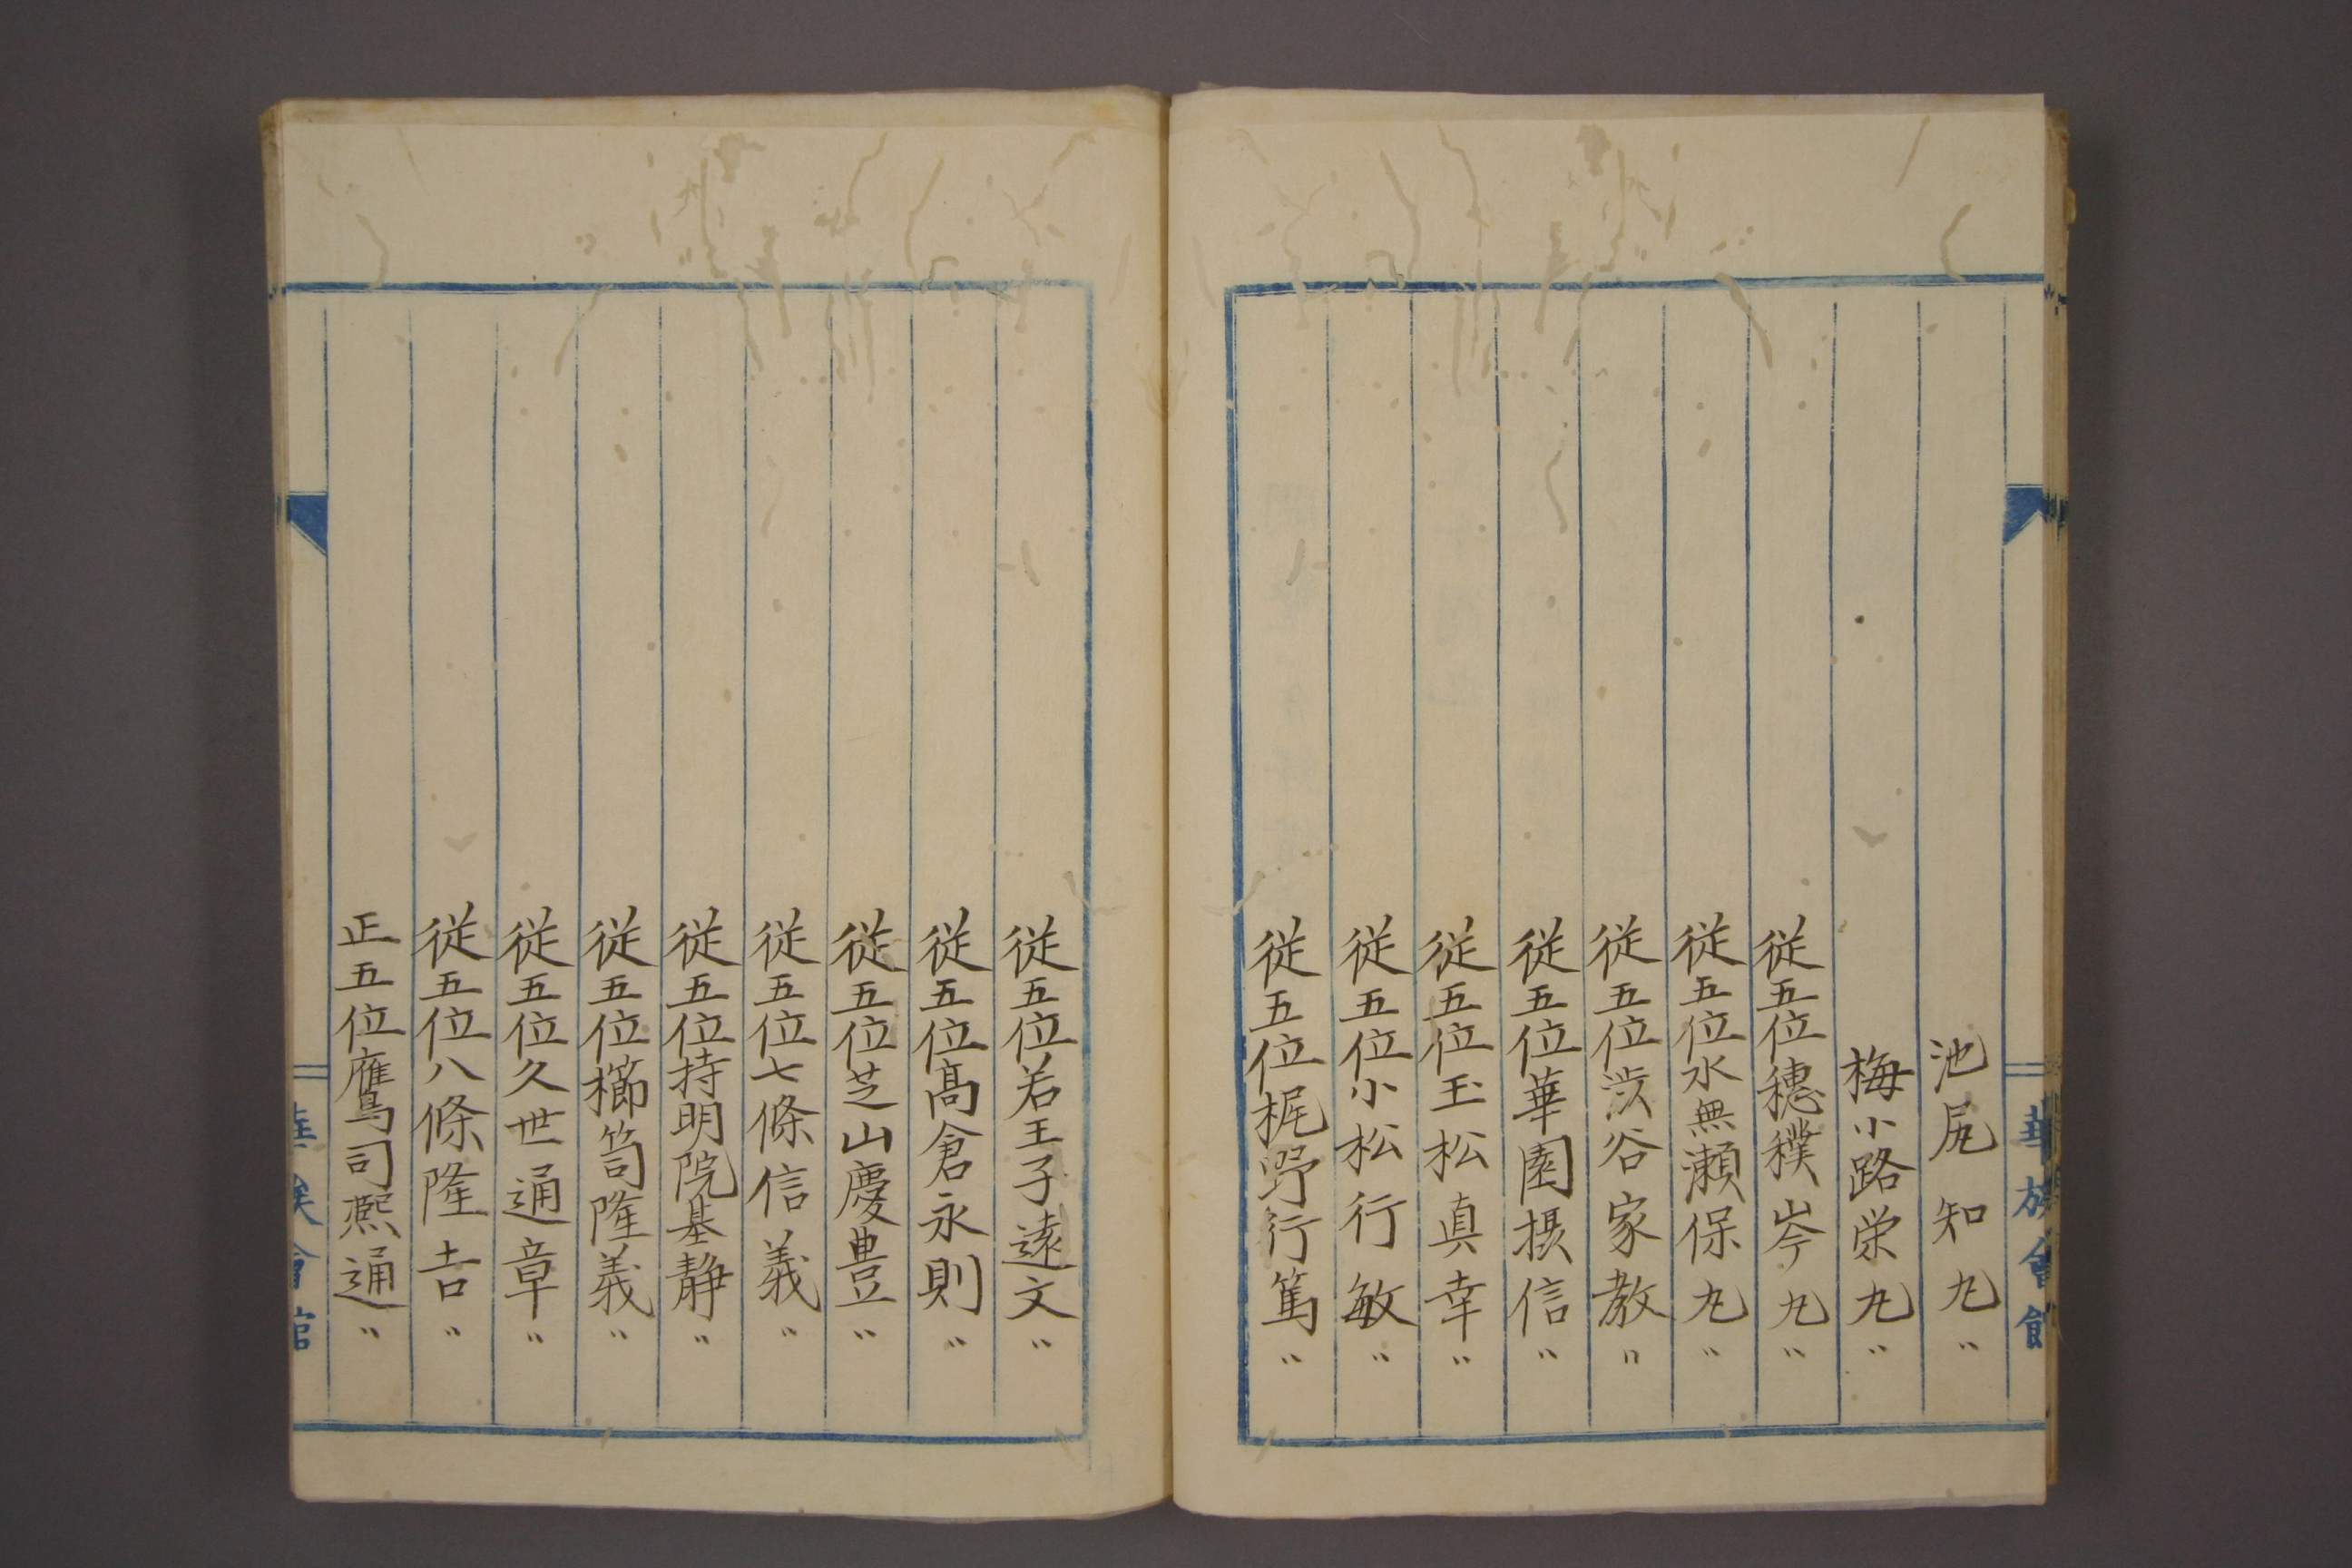 華族會館
池尻知丸〃
梅小路栄丸〃
従五位穗穙岑丸〃
従五位水無瀬保丸〃
従五位渋谷家教〃
従五位華園摂信〃
従五位玉松真幸〃
従五位小松行敏〃
従五位梶野行篤〃
従五位若王子遠文〃
従五位髙倉永則〃
従五位芝山慶豊〃
従五位七條信義〃
従五位持明院基静〃
従五位櫛笥隆義〃
従五位久世通章〃
従五位八條隆吉〃
正五位鷹司熙通〃
華族會館